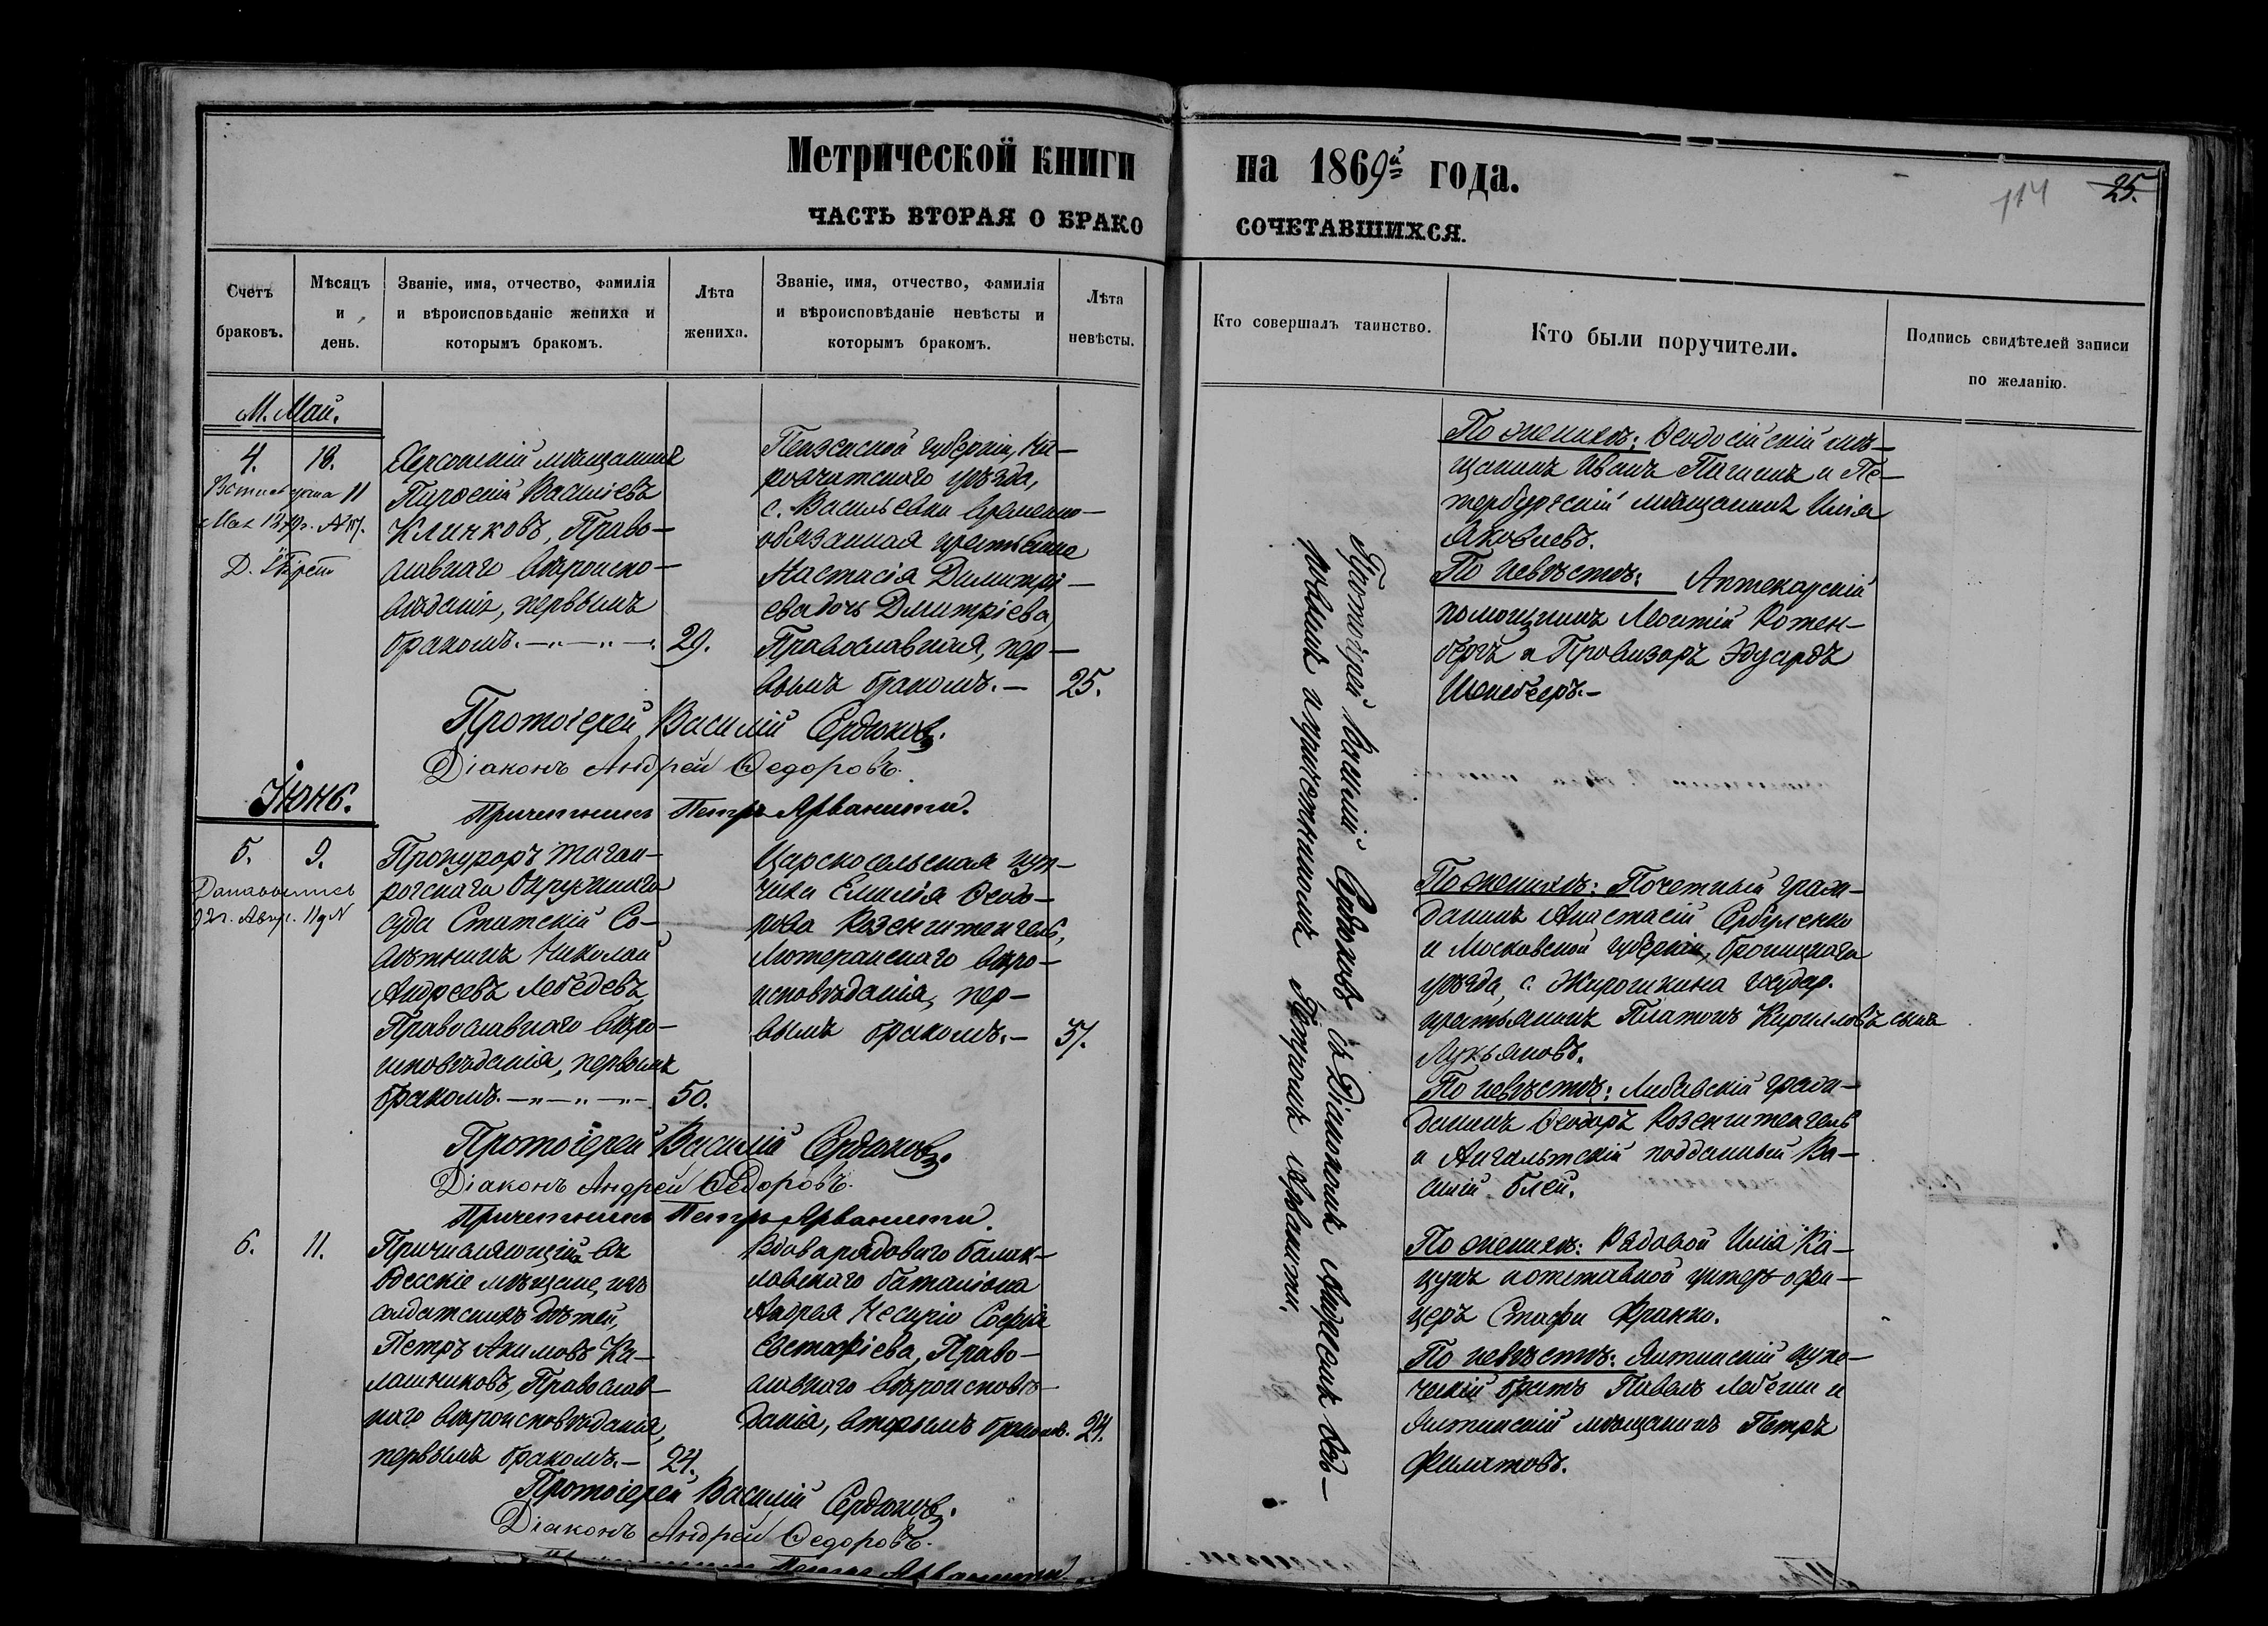 Метрической книги на 1869й года.
114 25.
ЧАСТЬ ВТОРАЯ О БРАКО СОЧЕТАВШИХСЯ.
Счетъ браковъ.
Мѣсяцъ и день.
Званіе, имя, отчество, фамилія
и вѣроисповѣданіе жениха и
которымъ бракомъ.
Лѣта
жениха.
Званіе, имя, отчество, фамилія
и вѣроисповѣданіе невѣсты и
которымъ бракомъ.
Лѣта
невѣсты.
Кто совершалъ таинство.
Кто были поручители.
Подпись свидѣтелей записи
по желанію.
М. Май.
4. 18.
11
Мая 1879г.
Херсонскій мѣщанинъ
Василіевъ
Клинковъ, Право-
славнаго вѣроиспо-
вѣданія, первымъ
бракомъ. 29.
Пензенской губерніи, Ни-
ровчатскаго уѣзда,
с. Васильевки временно-
обязанная крестьянка
Настасія Димитрі-
ева дочь Дмитріева,
Православная, пер-
вымъ бракомъ. 25.
По женихѣ: Ѳеодосійскій мѣ-
щанинъ Иванъ и Пе-
тербургскій мѣщанинъ Илія
Яковлевъ.
По невѣстѣ: Аптекарскій
помощникъ Леонтій Ротен-
бергъ и Провизоръ Эдуардъ
Протоіерей Василій Сердюковъ.
Діаконъ Андрей Ѳедоровъ.
Причетникъ Петръ Арванити.
Іюнь.
5. 9.
Прокуроръ Таган-
рогскаго Окружнаго
суда Статскій Со-
вѣтникъ Николай
Андреевъ Лебедевъ,
Православнаго вѣро-
исповѣданія, первымъ
бракомъ. 50.
Царскосельская куп-
чиха Емилія Ѳеодо-
рова Розенштенгель,
Лютеранскаго вѣро-
исповѣданія, пер-
вымъ бракомъ. 37.
По женихѣ: Почетный граж-
данинъ Анастасій Сербуленко
и Московской губерніи, бронницкаго
уѣзда, с. Жирошкина государ.
крестьянинъ Платонъ Кирилловъ сынъ
Лукьяновъ.
По невѣстѣ: Либавскій граж-
данинъ Ѳеодоръ Розенштенгель
и Ангальтскій подданный Ва-
силій Блей.
Протоіерей Василій Сердюковъ.
Діаконъ Андрей Ѳедоровъ.
Причетникъ Петръ Арванити.
6. 11.
Причисляющійся въ
Одесскіе мѣщане, изъ
солдатскихъ дѣтей,
Петръ Акимовъ Ка-
лашниковъ, Православ-
наго вѣроисповѣданія,
первымъ бракомъ. 24.
Вдова рядового балак-
лавскаго баталіона
Андрея Софія
Евстафіева, Право-
славнаго вѣроисповѣ-
данія, вторымъ бракомъ. 24.
По женихѣ: Рядовой Илія Ка-
цунъ и отставной унтеръ-офи-
церъ Стафи Франко.
По невѣстѣ: Ялтинскій купе-
ческій братъ Павелъ и
Ялтинскій мѣщанинъ Петръ
Филатовъ.
Протоіерей Василій Сердюковъ.
Діаконъ Андрей Ѳедоровъ.
Петръ Арванити.
Протоіерей Василій Сердюковъ съ Діакономъ Андреемъ Ѳедо-
ровымъ и причетникомъ Петромъ Арванити.